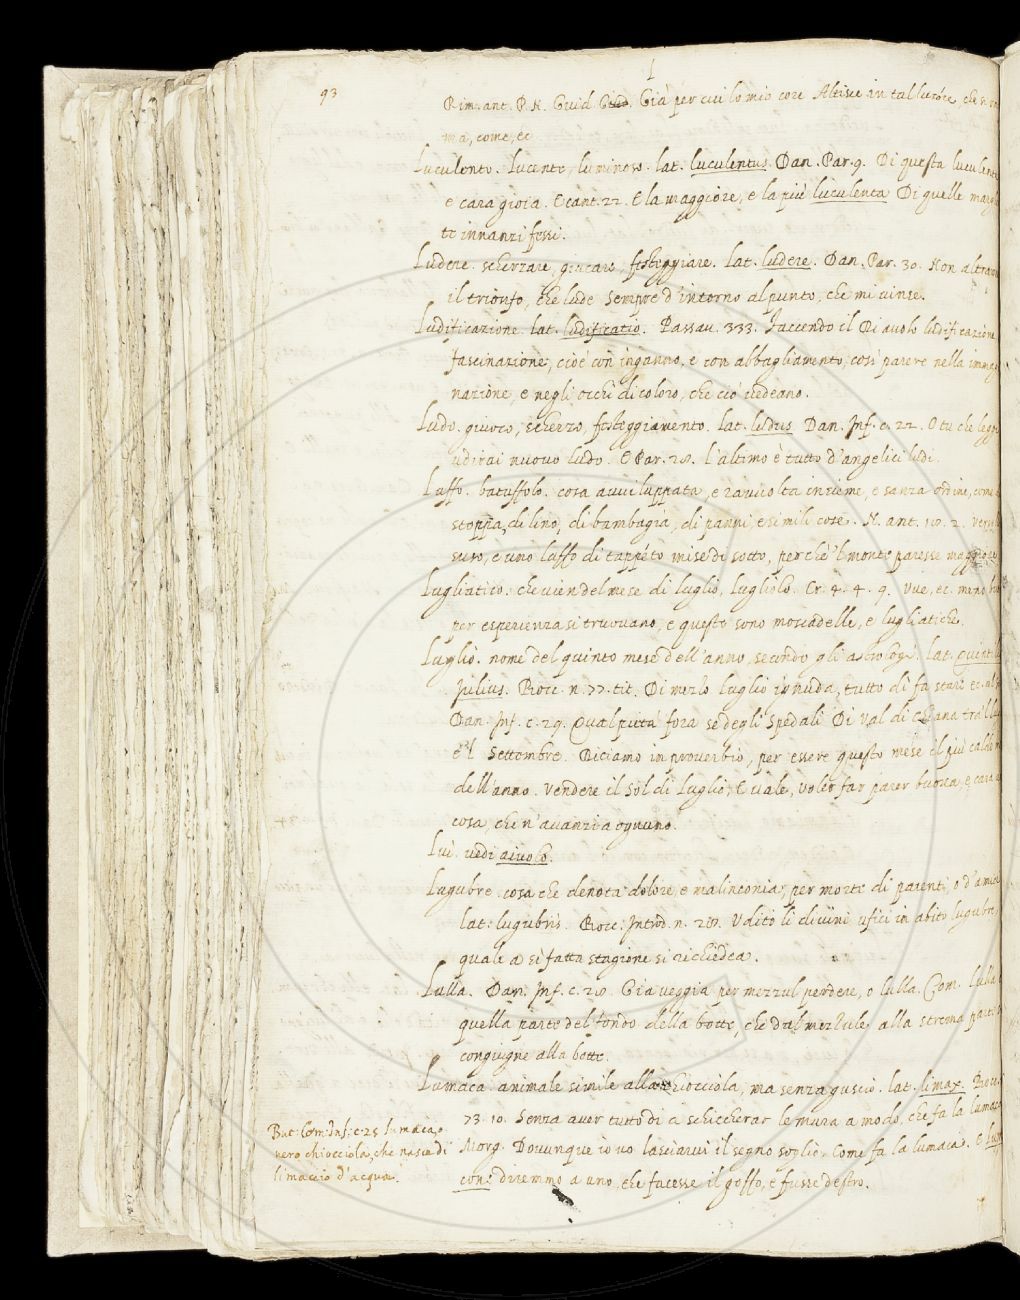 93
L
Rim. ant. P. N. Guid. Giud. Già per cui lo mio core Altisce in tal lucore, che si
ma, come, ec
Luculento. Lucente, luminoso. lat. luculentus. Dan. Par. 9. Di questa luculenta
e cara gioia. E cant. 22. E la maggiore, e la più luculenta Di quelle marghe
te innanzi fessi.
Ludere. scherzare, giucare, festeggiare. Lat. ludere. Dan. Par. 30. Non altramen
il trionfo, che lude Sempre d'intorno al punto, che mi vinse.
Ludificazione. lat. ludificatio. Passav. 333. Faccendo il Diavolo ludificazione,
fascinazione, cioè con inganno, e con abbagliamento, così parere nella immagi
nazione, e negli occhi di coloro, che ciò credeano.
Ludo. giuoco, scherzo, festeggiamento. Lat. ludus. Dan. Inf. c. 22. O tu che leggi
udirai nuovo ludo. E Par. 28. L'altimo è tutto d'angelici ludi.
Luffo. batuffolo. cosa avviluppata, e ravvolta insieme, e sanza ordine, come
stoppa, di lino, di bambagia, di panni, e simili cose. N. ant.
suso, e uno luffo di tappeto mise di sotto, perchè 'l monte paresse maggiore
Lugliatico. che vien del mese di luglio, Lugliolo. Cr. 4. 4. 9. Uve, ec.
per esperienza si truovano, e questo sono moscadelle, e lugliatiche.
Luglio. nome del quinto mese dell'anno, secondo gli astrologi. lat.
Julius. Bocc. n. 77. tit. Di mezo luglio ignuda, tutto dì fa stare
Dan. Inf. c. 29. Qual pietà fora se degli Spedali Di Val di Chiana tra 'l luglio
e 'l Settembre. Diciamo in proverbio, per essere questo mese il più caldo
dell'anno. Vendere il Sol di Luglio, E vale, voler far parer buona, e cara
cosa, che n'avanzi a ognuno.
Lui. vedi aiuolo.
Lugubre. cosa che denota dolore, e malinconia, per morte di parenti, o d'amici
lat. lugubris. Bocc. Introd. n. 28. Uditi li divini ufici in abito lugubre,
quale a sì fatta stagione si richiedea.
Lulla. Dan. Inf. c. 28. Già veggia per mezzul perdere, o lulla. Com. Lulla
quella parte del fondo della botte, che dal mezzule, alla strema parte si
congiugne alla botte.
Lumaca. animale simile alla chiocciola, ma senza guscio. lat. limax. Bocc.
73. 10. Senza aver tutto dì a schiccherar le mura a modo, che fa la lumaca
Morg. Dovunque io vo lasciarvi il segno soglio, Come fa la lumaca. E
con: diremmo a uno, che facesse il goffo, e fusse destro.
But. Com. Inf. c. 25 lumaca, o
vero chiocciola, che nasce di
limaccio d'acqua.